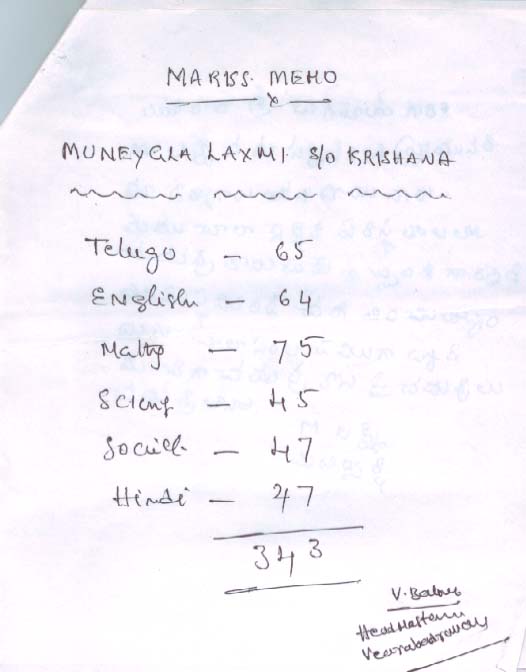 MARKS MEMO
MUNEYGLA LAXMI S/O KRISHANA
Telugo - 65
English - 64
Maths - 75
Scieng - 45
Sociel - 47
Hindi - 47
343
V. Balu
Head Master